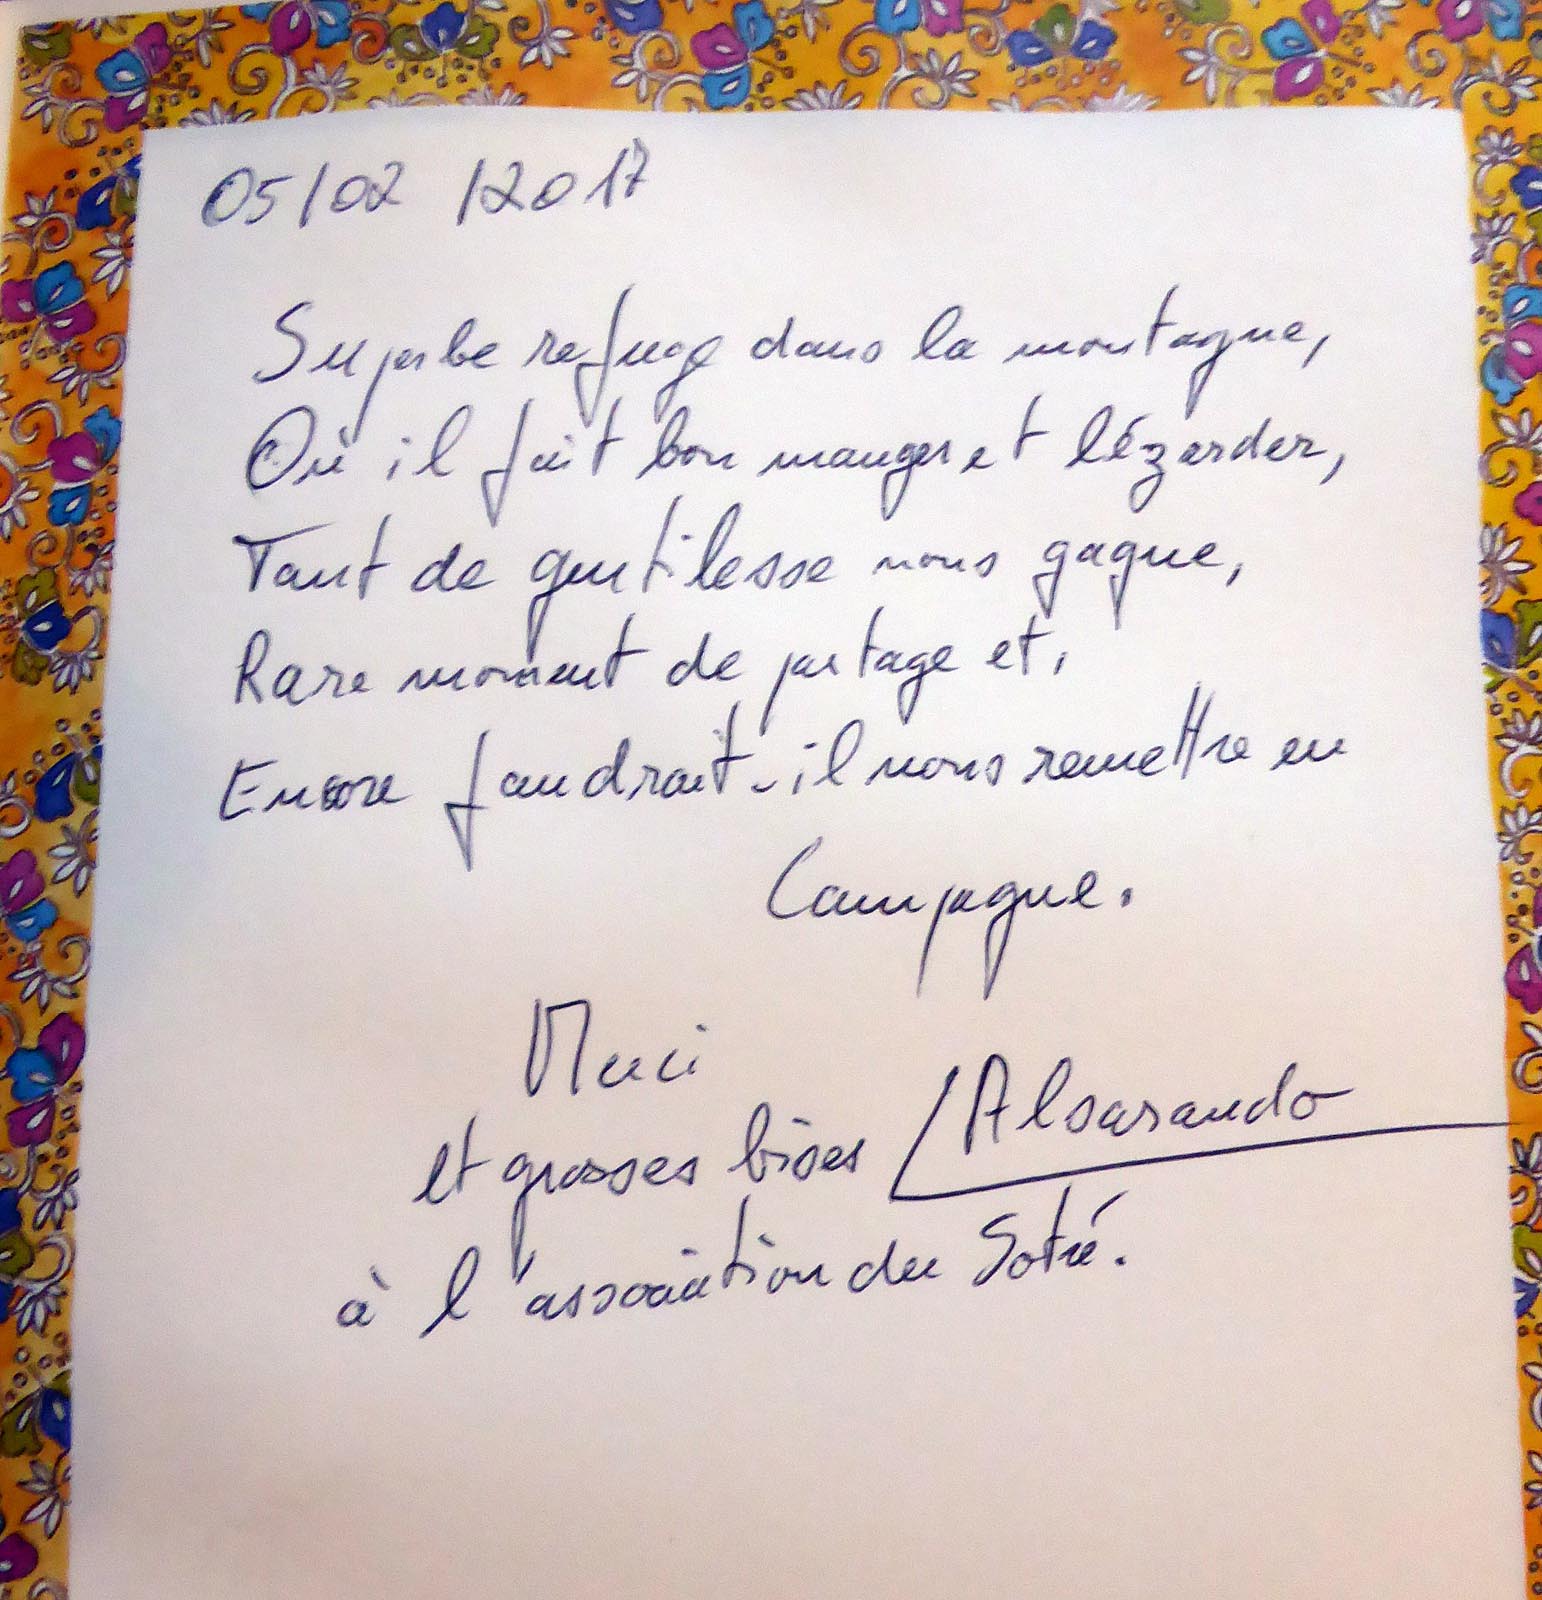 05/02/2017
Superbe refuge dans la montagne,
Où il fait bon manger et lézarder,
Tant de gentilesse nous gagne,
Rare moment de partage et,
Encore faudrait-il nous remettre en
Campagne.
Merci
et grosses bises Alsarando
à l'association du Sotré.